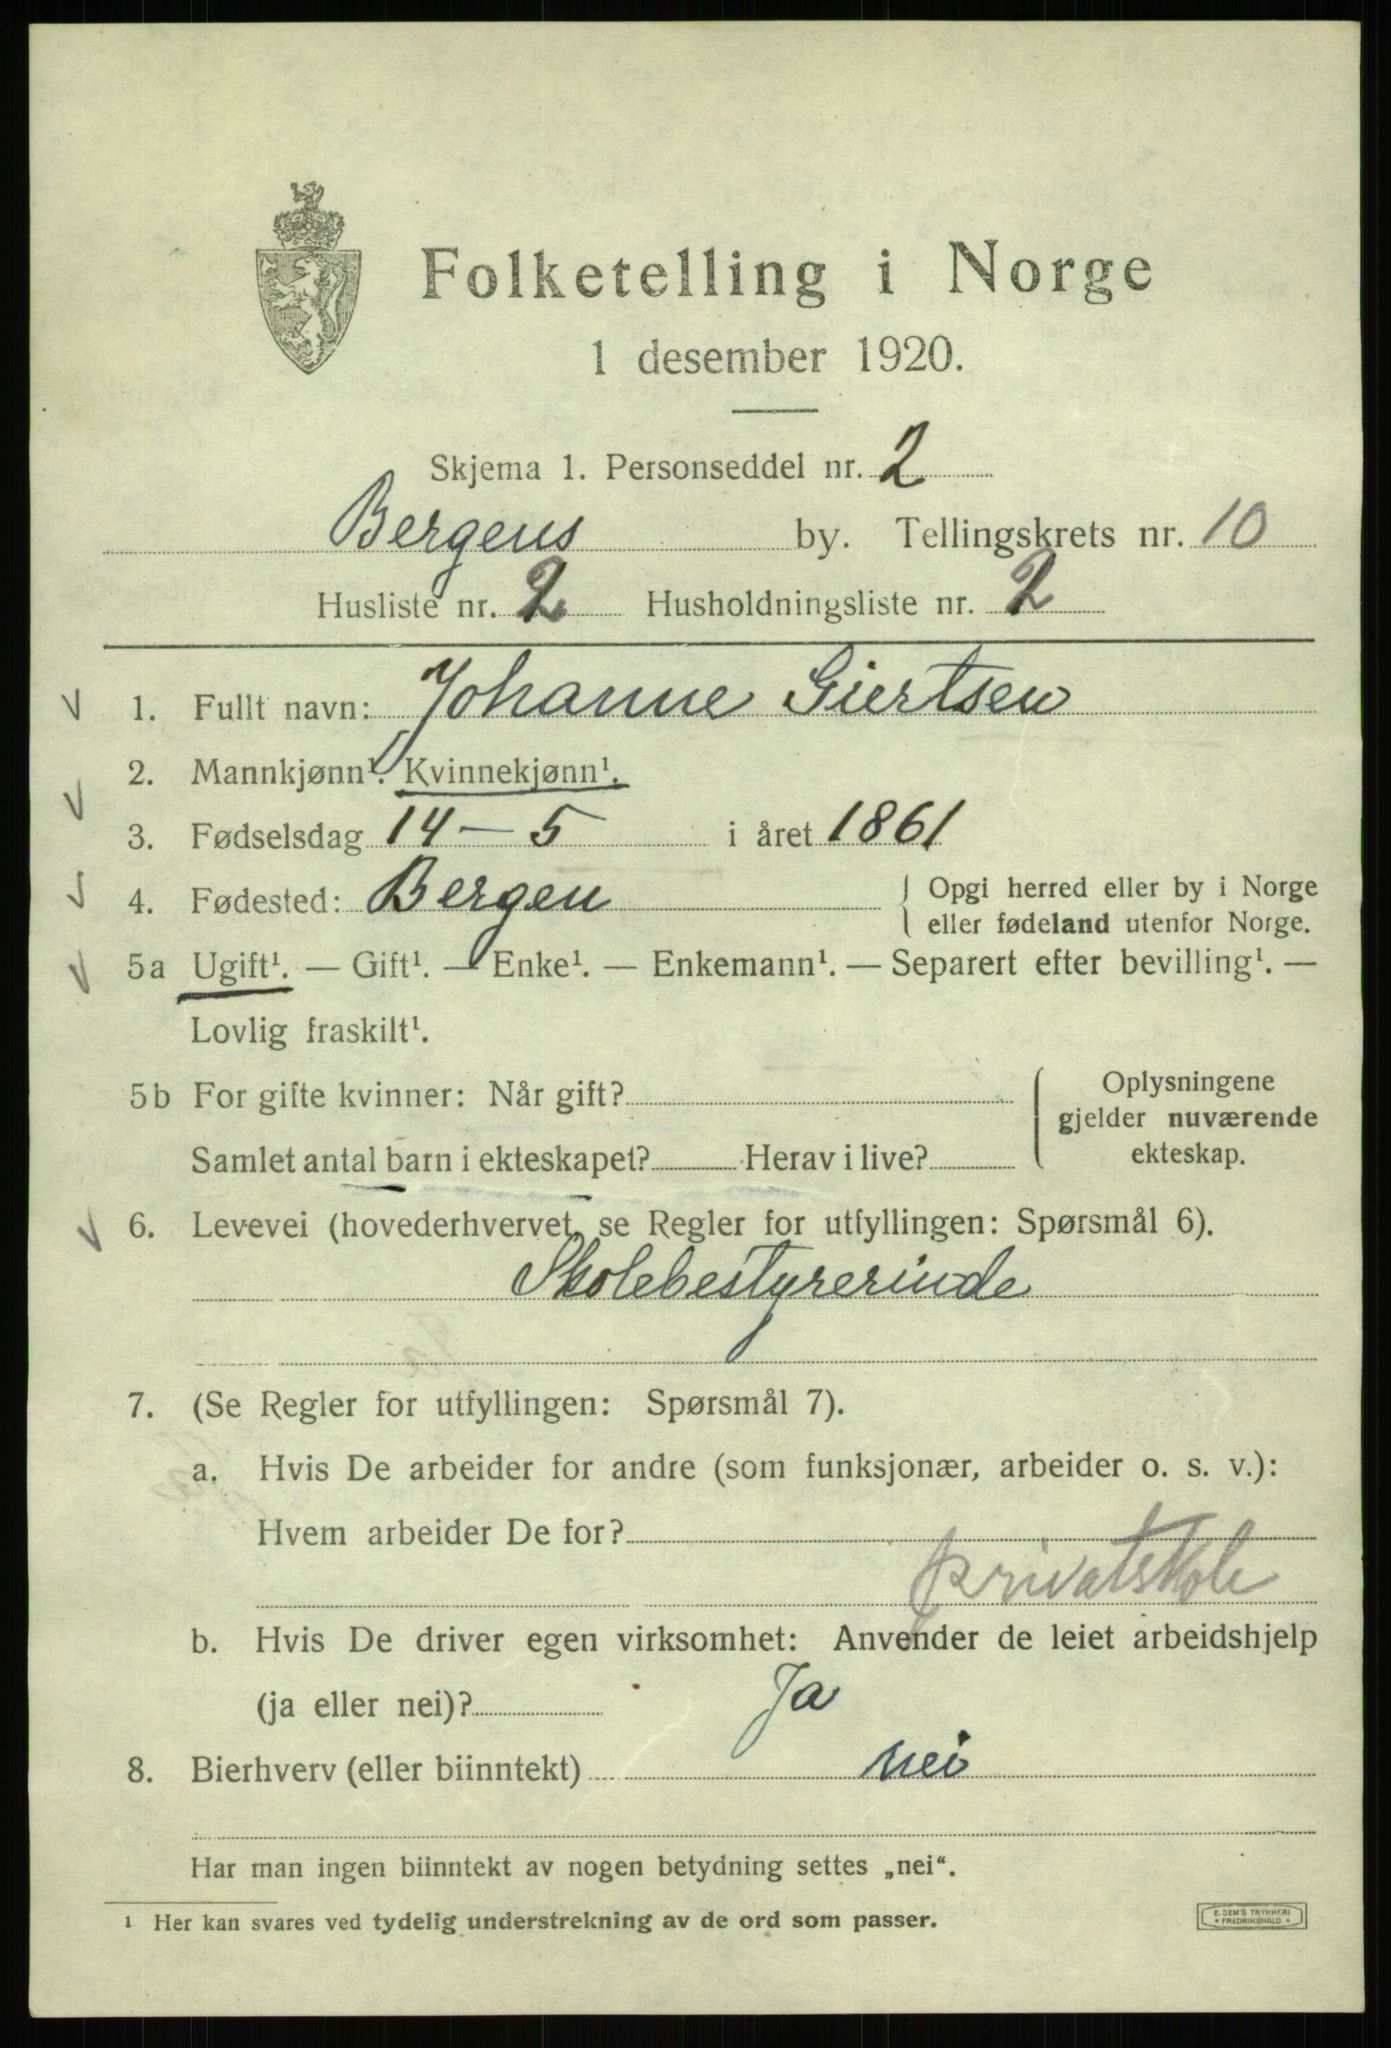 Folketelling i Norge
1 desember 1920.
Skjema 1. Personseddel nr. 2
Bergens by. Tellingskrets nr. 10
Husliste nr. 2 Husholdningsliste nr. 2
1. Fullt navn: Johanne Giertsen
2. Mannkjønn¹. Kvinnekjønn¹.
3. Fødselsdag 14 – 5 i året 1861
4. Fødested: Bergen { Opgi herred eller by i Norge
eller fødeland utenfor Norge.
5a Ugift¹. — Gift¹. — Enke¹. — Enkemann¹. — Separert efter bevilling¹. —
Lovlig fraskilt¹.
5b For gifte kvinner: Når gift? { Oplysningene
gjelder nuværende
Samlet antal barn i ekteskapet? Herav i live? ekteskap.
6. Levevei (hovederhvervet, se Regler for utfyllingen: Spørsmål 6).
Skolebestyrerinde
7. (Se Regler for utfyllingen: Spørsmål 7).
a. Hvis De arbeider for andre (som funksjonær, arbeider o. s. v.):
Hvem arbeider De for?
privatskole
b. Hvis De driver egen virksomhet: Anvender de leiet arbeidshjelp
(ja eller nei)? Ja
8. Bierhverv (eller biinntekt) nei
Har man ingen biinntekt av nogen betydning settes „nei“.
¹ Her kan svares ved tydelig understrekning av de ord som passer.
E. SEM'S TRYKKERI
* FREDRIKSHALD *